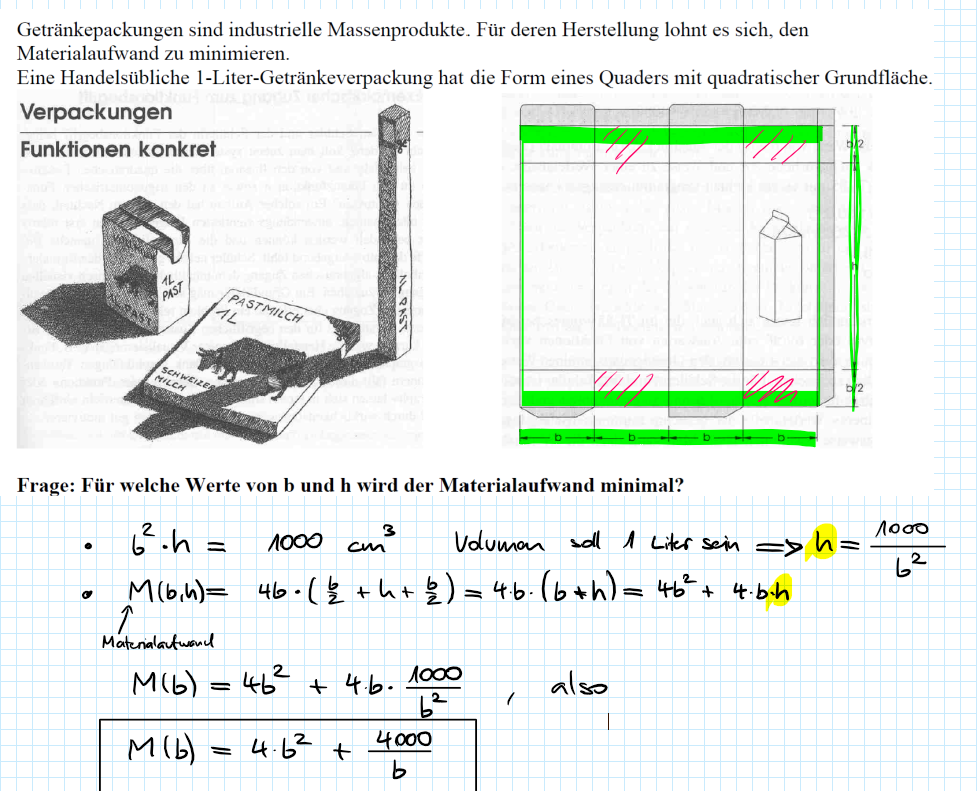 Getränkepackungen sind industrielle Massenprodukte. Für deren Herstellung lohnt es sich, den
Materialaufwand zu minimieren.
Eine Handelsübliche 1-Liter-Getränkeverpackung hat die Form eines Quaders mit quadratischer Grundfläche.
Verpackungen
Funktionen konkret
1L
PAST
PAST
PASTMILCH
1L
SCHWEIZER
MILCH
1L PAST
b/2
h
b/2
b b b b
Frage: Für welche Werte von b und h wird der Materialaufwand minimal?
• b² · h = 1000 cm³ Volumen soll 1 Liter sein => h = 1000/b²
• M(b,h) = 4b · (b/2 + h + b/2) = 4·b · (b + h) = 4b² + 4·b·h
Materialaufwand
M(b) = 4b² + 4·b · 1000/b² , also
M(b) = 4·b² + 4000/b